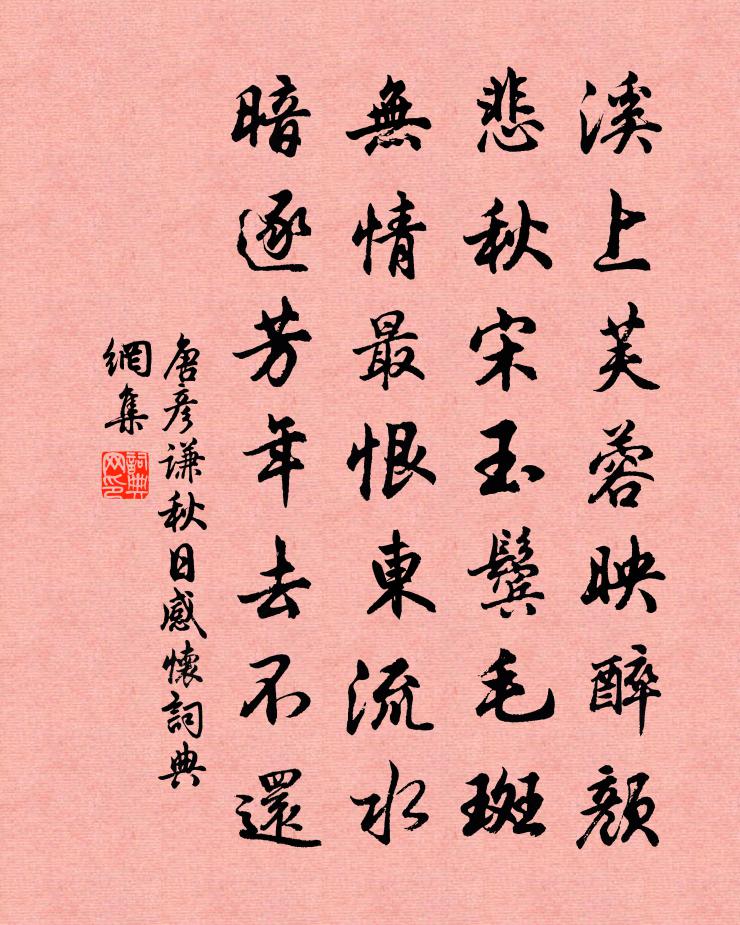 溪上芙蓉映醉顏
悲秋宋玉鬢毛斑
無情最恨東流水
暗逐芳年去不還
唐彥謙秋日感懷詞典
網集
詞典網印